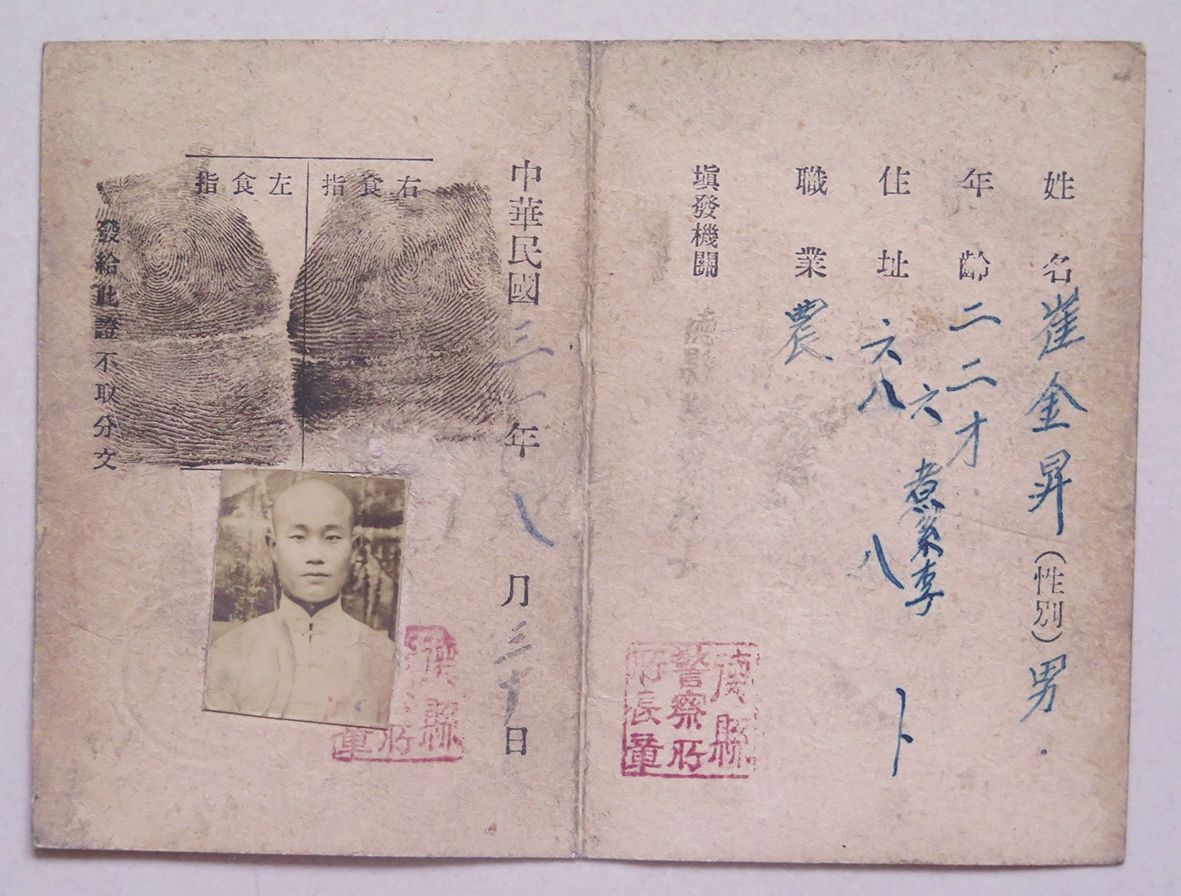 姓名崔金昇(性別)男
年齡二二才
住址六
六八 八
職業農
填發機關
德縣
警察所
所長章
中華民國三一年八月三十日
右食指
左食指
發給此證不取分文
德縣
所
章